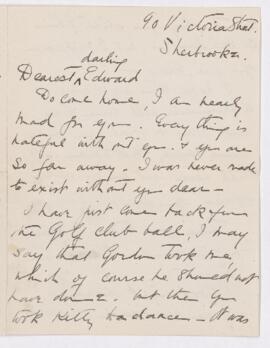 90 Victoria Street.
Sherbrooke.
darling
Dearest ^ Edward
Do come home, I am nearly
mad for you. Everything is
hateful with out you. & you are
so far away. I was never made
to exist without you dear –
I have just come back from
the Golf club ball, I may
say that Gordon took me,
which of course he should not
have done. but then you
took Kitty to a dance – it was